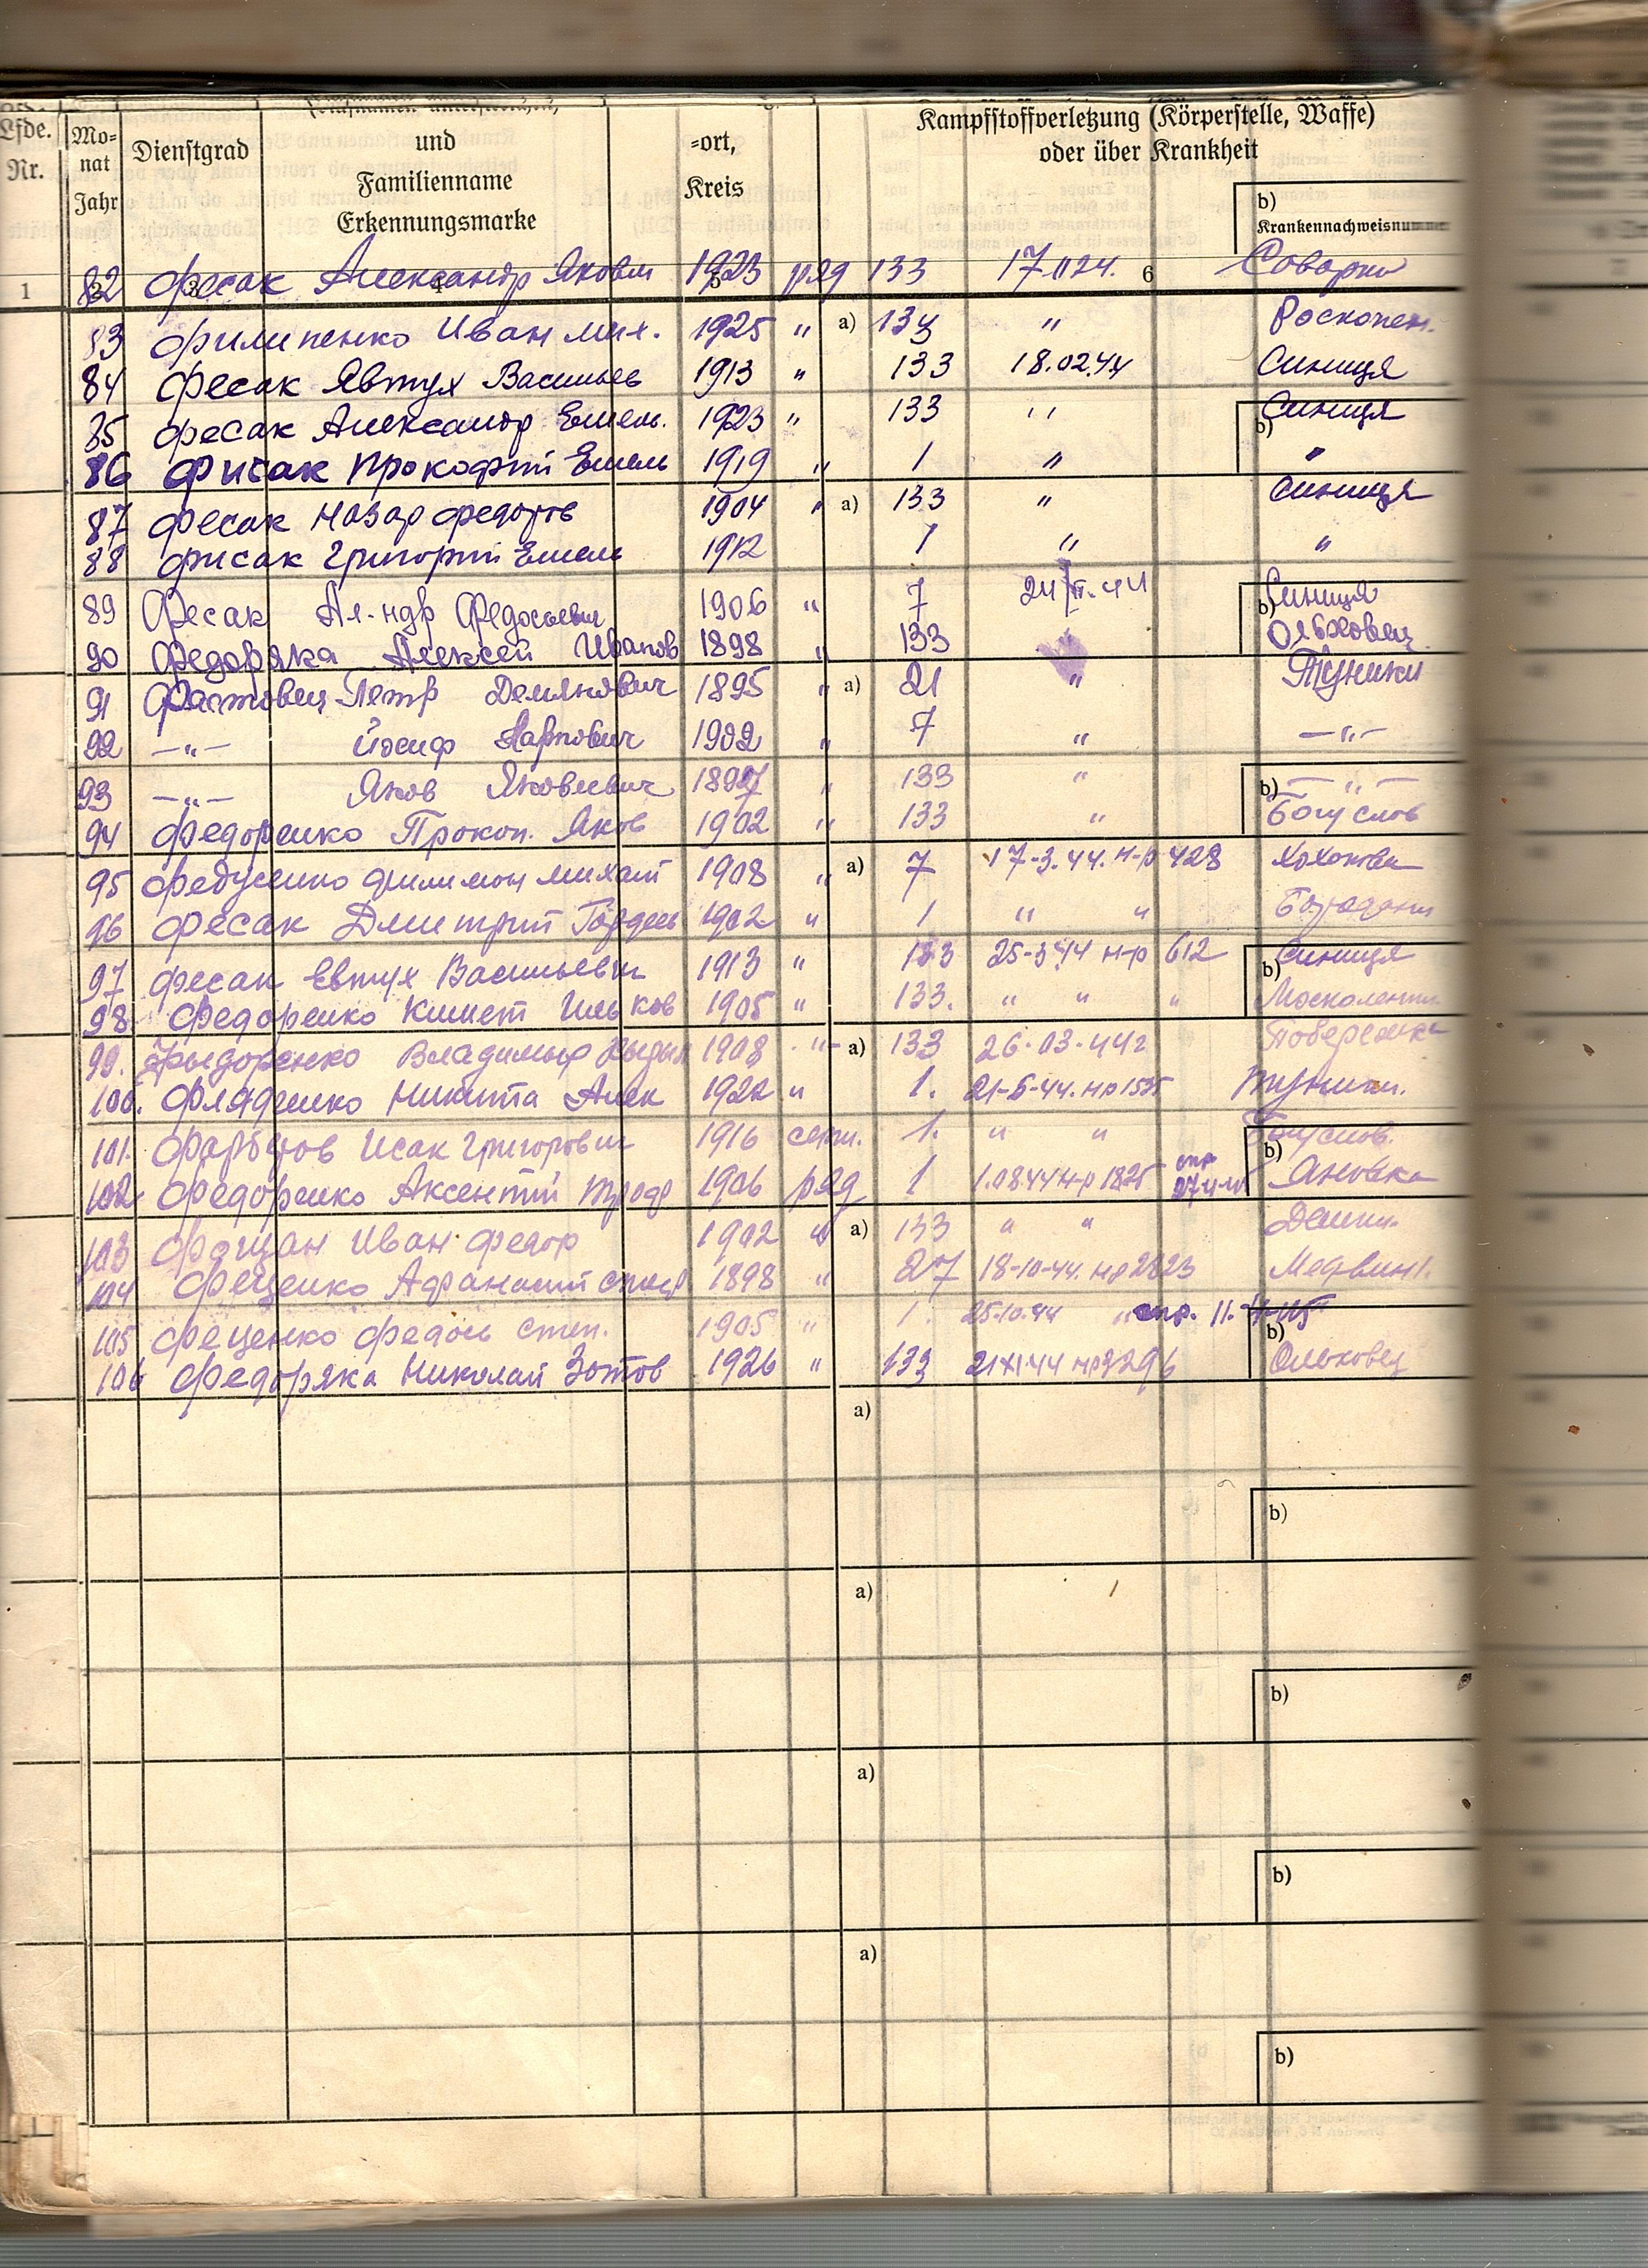 Lfde. Nr.
Mo-
nat
Jahr
Dienstgrad
und
Familienname
Erkennungsmarke
-ort,
Kreis
Kampfstoffverletzung (Körperstelle, Waffe)
oder über Krankheit
b)
Krankennachweisnummer
1 2 3 4 5 6
82 Фесак Александр Яковл 1923 ряд 133 Соварка
83 Филипенко Иван Мих. 1925 " а) 134 " Роскопан.
84 Фесак Явтух Васильев 1913 " 133 18.02.44 Синиця
85 Фесак Александр Емель. 1923 " 133 " b) Синиця
86 Фисак Прокофий Емель 1919 " 1 " "
87 Фесак Назар Федоров 1904 " a) 133 " Синиця
88 Фисак Григорий Емель 1912 1 " "
89 Фесак Ал-ндр Федосьевич 1906 " 7 24/II-44 b) Синиця
90 Федоряка Алексей Иванов 1898 " 133 " Ольховец
91 Фастовец Петр Демянович 1895 " a) 21 " Туники
92 —"— Йосиф Карпович 1902 " 7 " —"—
93 —"— Яков Яковлевич 1897 " 133 " b) —"—
94 Федоренко Прокоп. Яков 1902 " 133 " Богуслов
95 Федусенко Филимон Михаил 1908 " a) 7 17-3.44. н-р 428 Хохотва
96 Фесак Дмитрий Гордеев 1902 " 1 " "
97 Фесак Евтух Васильевич 1913 " 133 25-3.44 н-р 612 b) Синиця
98 Федоренко Климет Ильков 1905 " 133. " " " Москаленки
99. Фыдоренко Владимыр 1908 -"- a) 133 26-03-44г Побережка
100. Фляденко Никита Алек 1922 " 1. 21-6-44. нр 1535 Туники.
101. Исак Григорович 1916 1. " " b) Богуслов.
102 Федоренко Аксентий Трофр 1906 ряд 1 1.0844 н-р 1825 Яновка
103 Иван Федор 1902 " a) 133 " "
104 Фещенко Афанасий 1898 " 27 18-10-44. нр 2823 Медвин 1.
105 Фещенко Федось Степ. 1905 " 1. 25.10.44 " b)
106 Федоряка Николай Зотов 1926 " 133 21 XI 44 нр 3296 Ольховец
a)
b)
a)
b)
a)
b)
a)
b)